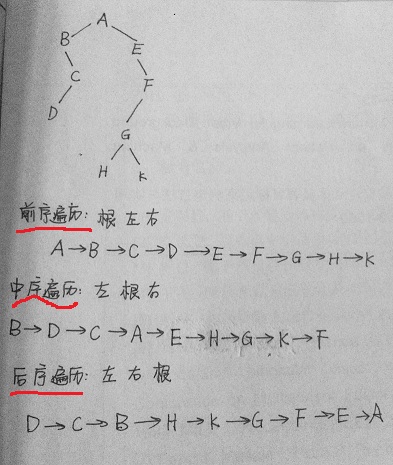 A
B
E
C
F
D
G
H
K
前序遍历: 根左右
A→B→C→D→E→F→G→H→K
中序遍历: 左根右
B→D→C→A→E→H→G→K→F
后序遍历: 左右根
D→C→B→H→K→G→F→E→A